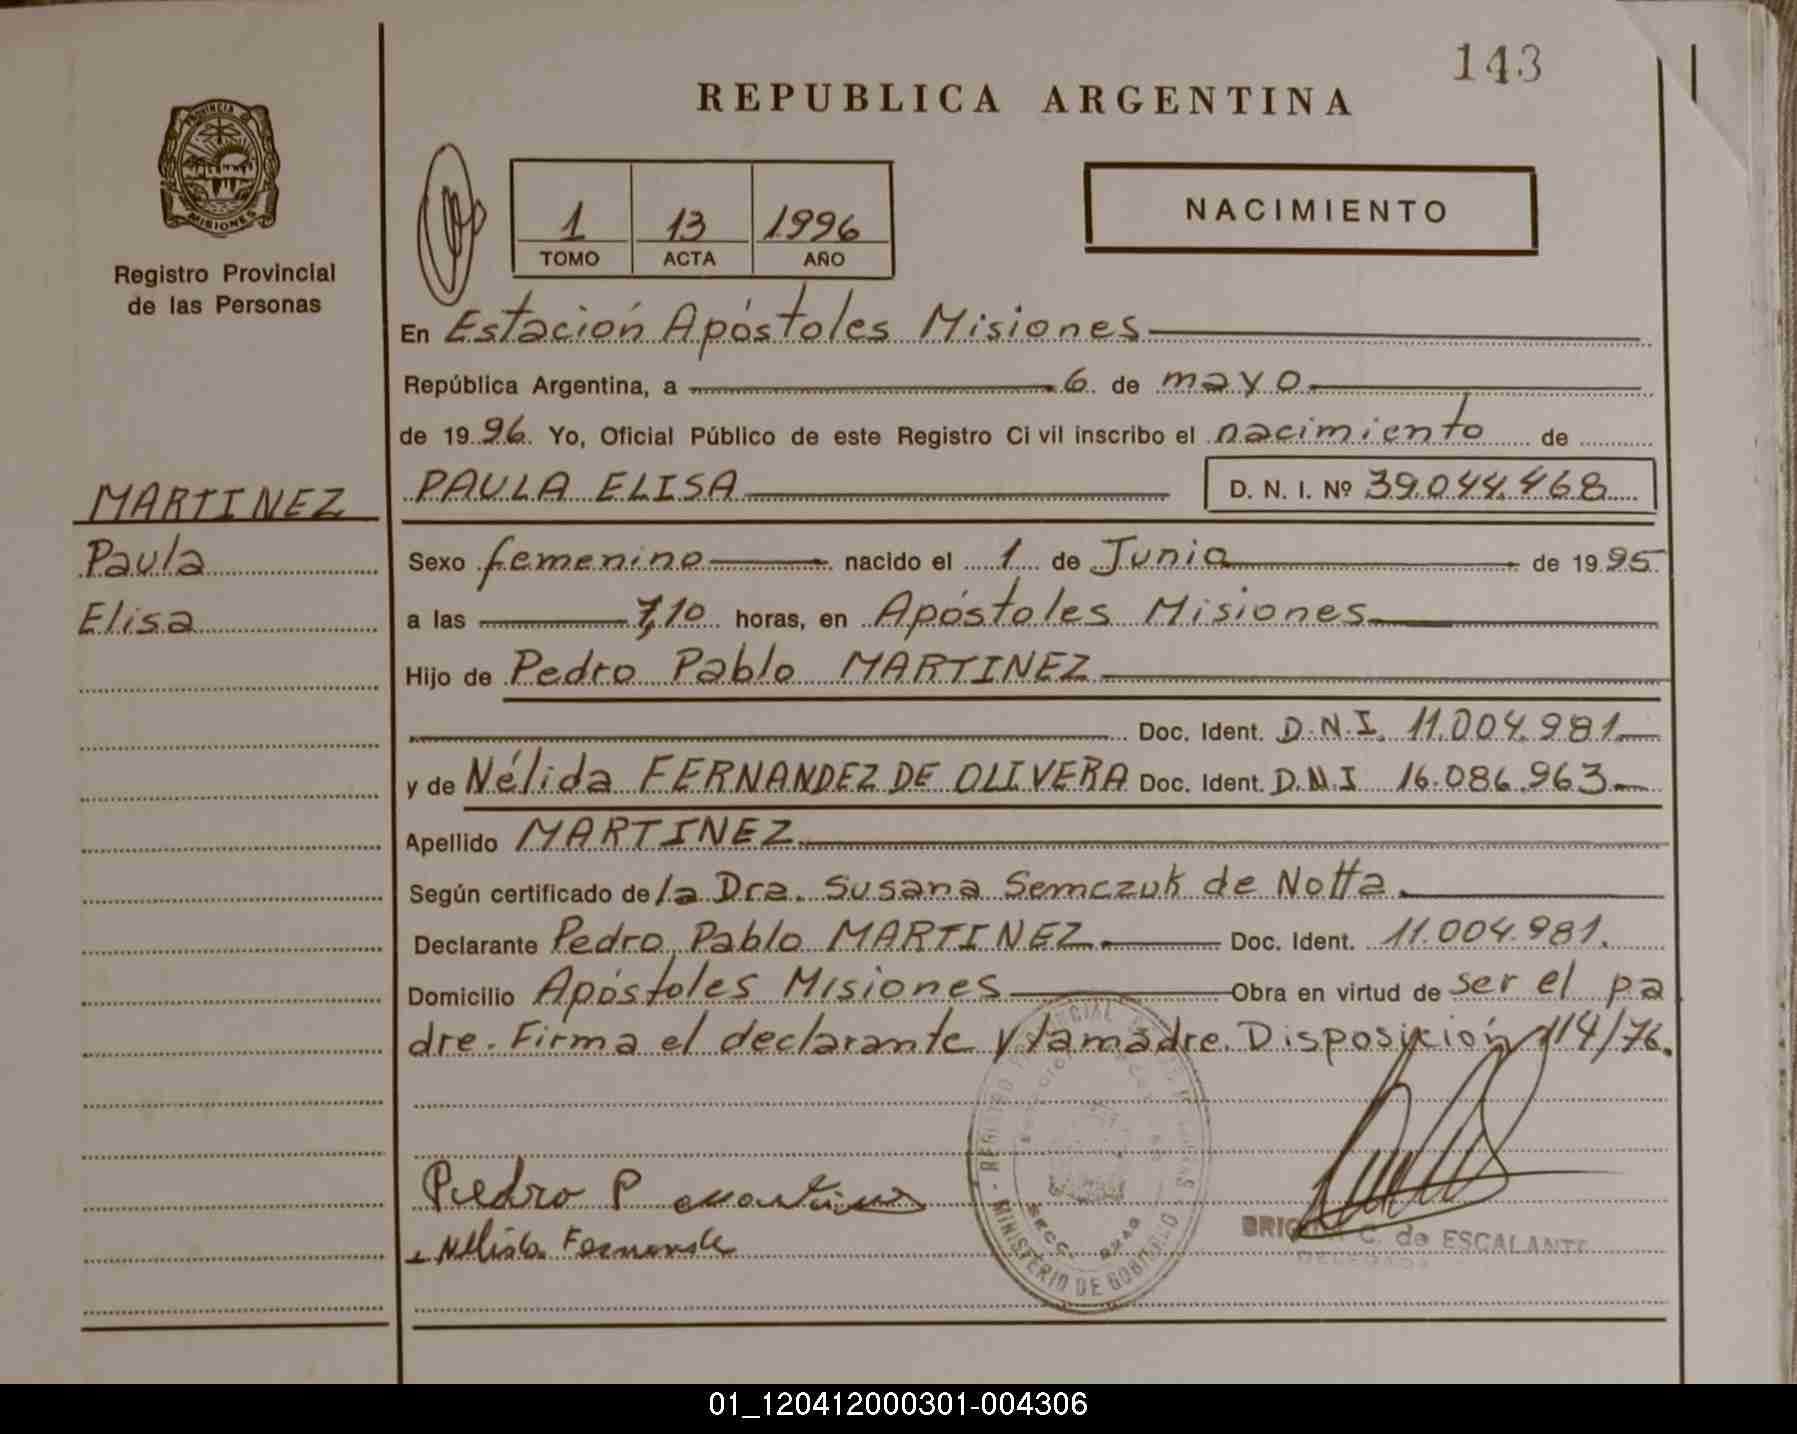 143
REPUBLICA ARGENTINA
PROVINCIA DE
MISIONES
Registro Provincial
de las Personas
1 13 1996
TOMO ACTA AÑO
NACIMIENTO
En Estación Apóstoles Misiones
República Argentina, a 6 de mayo
de 1996. Yo, Oficial Público de este Registro Civil inscribo el nacimiento de
PAULA ELISA D. N. I. Nº 39.044.468
MARTINEZ
Paula
Elisa
Sexo femenino nacido el 1 de Junio de 1995
a las 7,10 horas, en Apóstoles Misiones
Hijo de Pedro Pablo MARTINEZ
Doc. Ident. D.N.I. 11.004.981
y de Nélida FERNANDEZ DE OLIVERA Doc. Ident. D.N.I 16.086.963
Apellido MARTINEZ
Según certificado de la Dra. Susana Semczuk de Notta
Declarante Pedro Pablo MARTINEZ Doc. Ident. 11.004.981.
Domicilio Apóstoles Misiones Obra en virtud de ser el pa
dre. Firma el declarante y la madre. Disposición 114/76.
Pedro P Martinez
Nélida Fernande
REGISTRO PROVINCIAL
MINISTERIO DE GOBIERNO
C. de ESCALANTE
DELEGADA
01_120412000301-004306